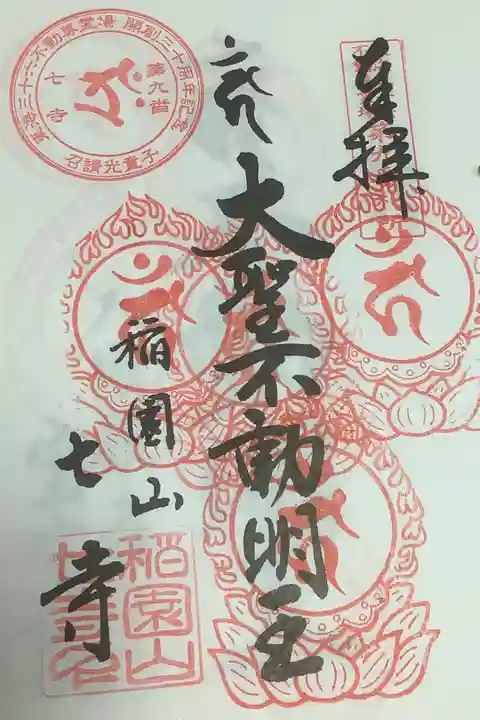 奉拝
大聖不動明王
稲園山
七寺
東海三十六不動尊霊場 開創三十周年記念
第九番
七寺
召請光童子
稲園山
七寺